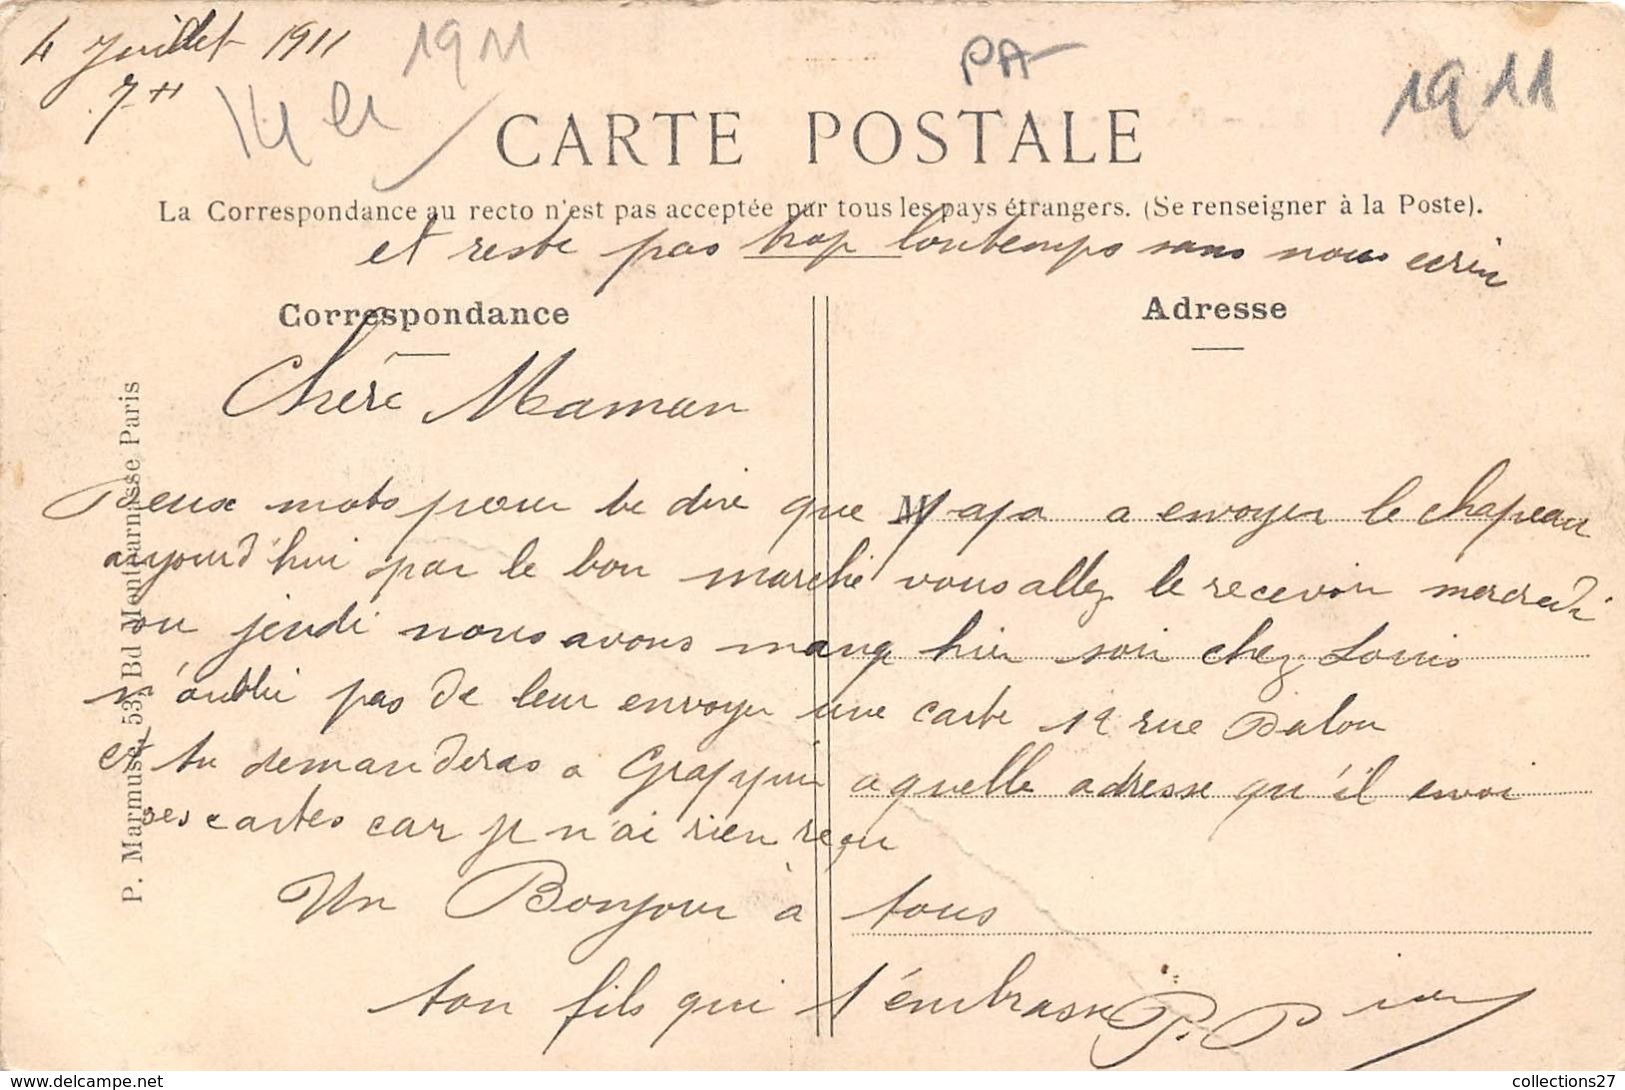 4 Juillet 1911
1911
PA
1911
CARTE POSTALE
La Correspondance au recto n'est pas acceptée par tous les pays étrangers. (Se renseigner à la Poste).
et reste pas trop lontemps sans nous ecrire
Correspondance
Adresse
Chère Maman
Deux mots pour te dire que Papa a envoyer le chapeau
aujourd'hui par le bon marché vous allez le recevoir mercredi
ou jeudi nous avons mang hier soir chez Louis
n'oubli pas de leur envoyer une carte 12 rue Dalou
et tu demanderas a Grappin a quelle adresse qu'il envoi
ses cartes car je n'ai rien reçu
Un Bonjour à tous
ton fils qui t'embrasse P.
P. Marmuse, 53, Bd Montparnasse Paris
https://www.delcampe.net
collections27